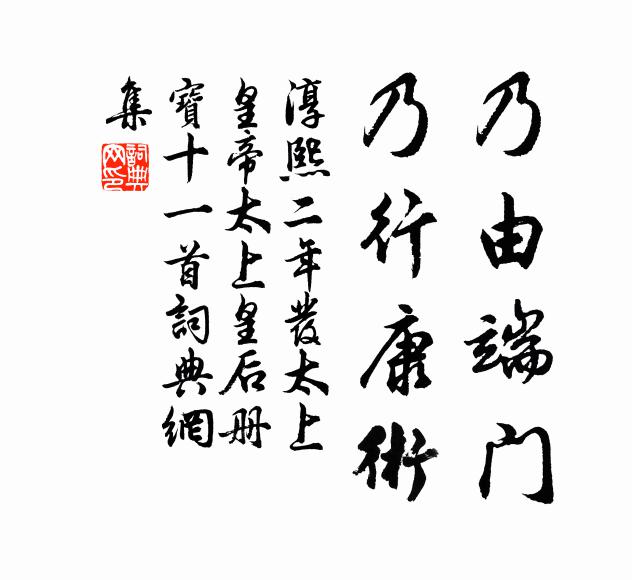 乃由端门
乃行康術
淳熙二年發太上
皇帝太上皇后册
寶十一首詞典網
集
詞典网印